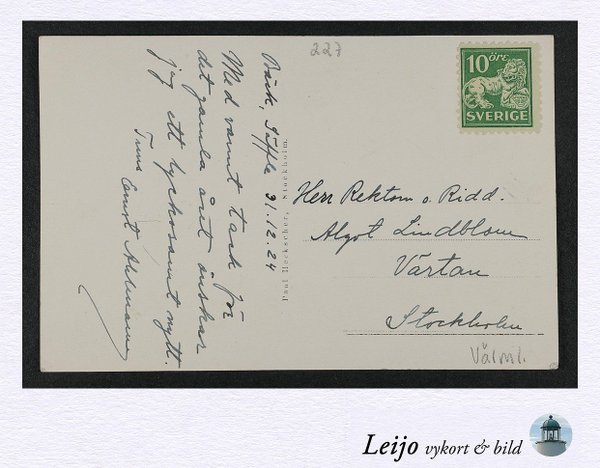 227
10 ÖRE
SVERIGE
Bäck, Säffle 31.12.24
Med varmt tack för
det gamla året önskar
jag ett lyckosamt nytt.
Ernst Ahlmann
Paul Heckscher, Stockholm.
Herr Rektorn o. Ridd.
Algot Lindblom
Värtan
Stockholm
Leijo vykort & bild